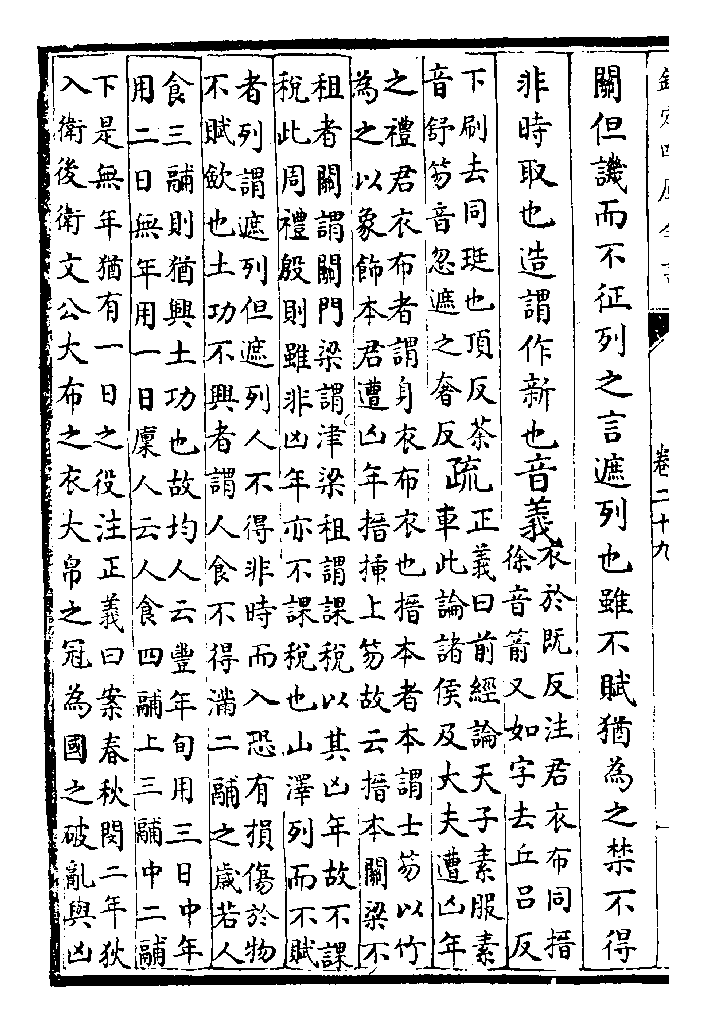 欽定四庫全書
卷二十九
關但譏而不征列之言遮列也雖不賦猶為之禁不得
非時取也造謂作新也音義
衣於既反注君衣布同搢
徐音箭又如字去丘呂反
下刷去同珽也頂反荼
音舒笏音忽遮之奢反
疏
正義曰前經論天子素服素
車此論諸侯及大夫遭凶年
之禮君衣布者謂身衣布衣也搢本者本謂士笏以竹
為之以象飾本君遭凶年搢揷上笏故云搢本關梁不
租者關謂關門梁謂津梁租謂課稅以其凶年故不課
稅此周禮殷則雖非凶年亦不課稅也山澤列而不賦
者列謂遮列但遮列人不得非時而入恐有損傷於物
不賦斂也土功不興者謂人食不得滿二鬴之歲若人
食三鬴則猶興土功也故均人云豐年旬用三日中年
用二日無年用一日廩人云人食四鬴上三鬴中二鬴
下是無年猶有一日之役注正義曰案春秋閔二年狄
入衛後衛文公大布之衣大帛之冠為國之破亂與凶